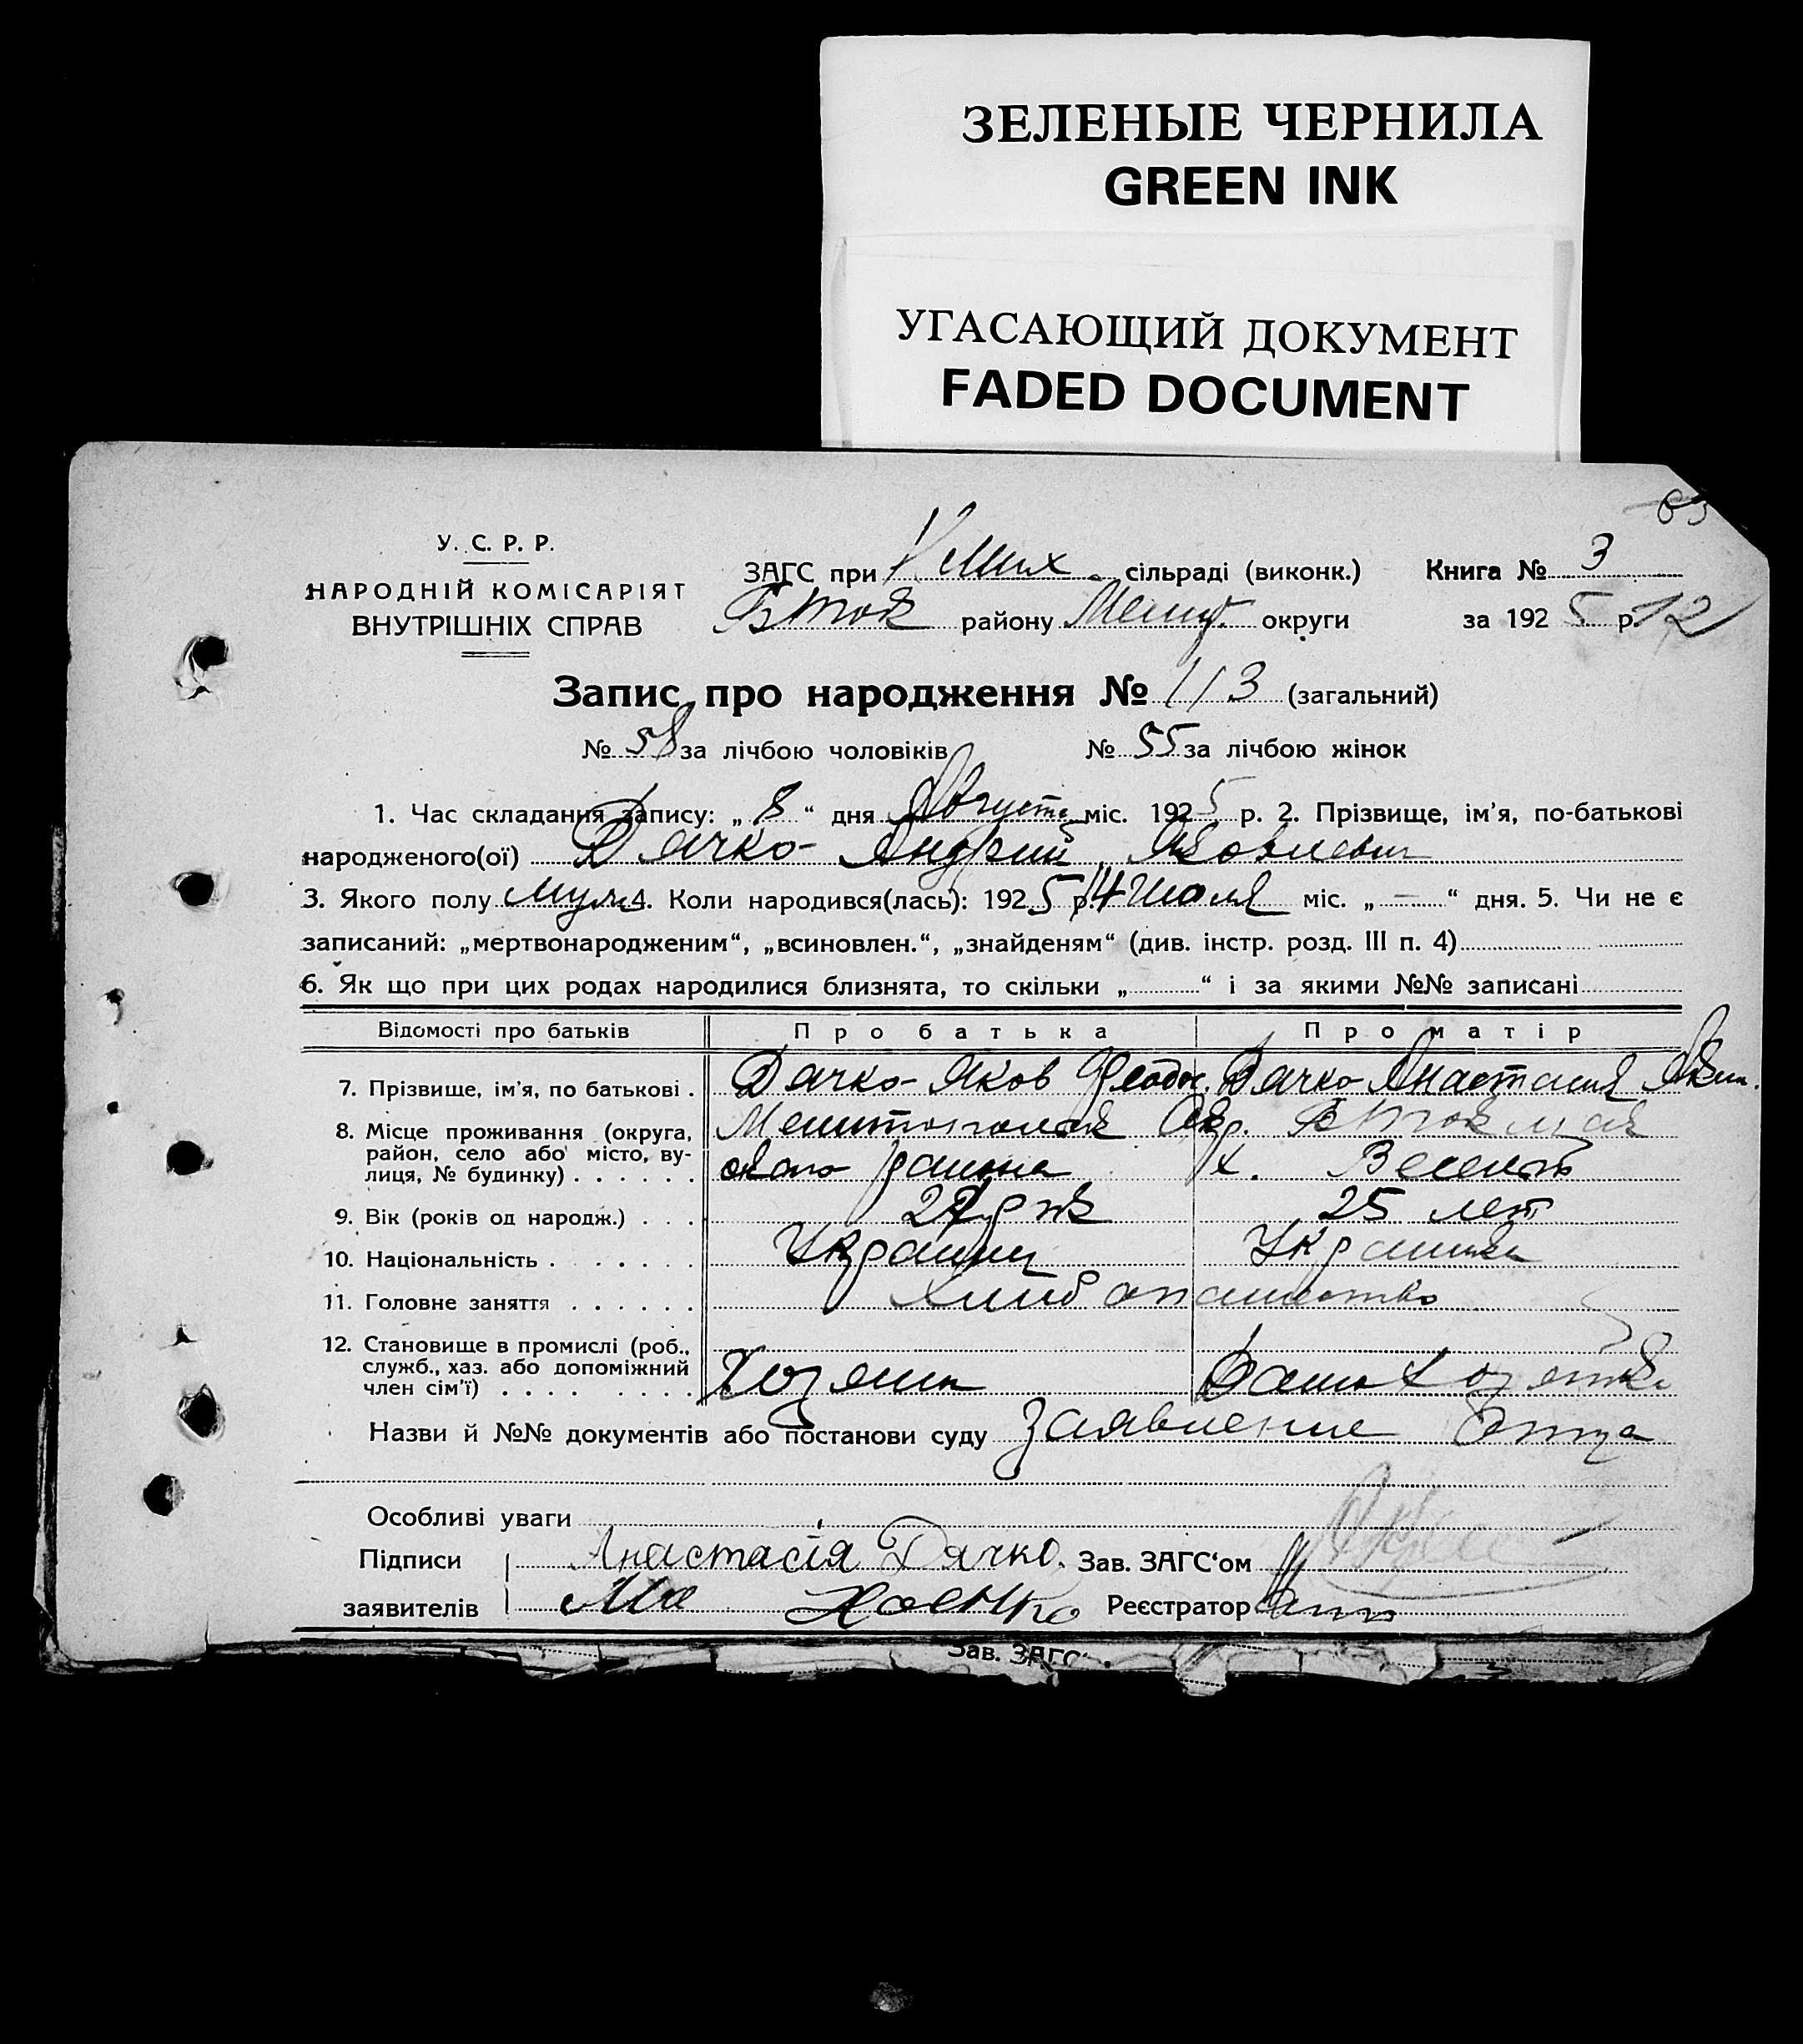 ЗЕЛЕНЫЕ ЧЕРНИЛА
GREEN INK
УГАСАЮЩИЙ ДОКУМЕНТ
FADED DOCUMENT
У. С. Р. Р.
НАРОДНІЙ КОМІСАРІЯТ
ВНУТРІШНІХ СПРАВ
ЗАГС при Мих сільраді (виконк.) Книга № 3
Б Ток району Мелит. округи за 1925 р. 12
Запис про народження № 113 (загальний)
№ 58 за лічбою чоловіків № 55 за лічбою жінок
1. Час складання запису: „ 8 “ дня Августа міс. 1925 р. 2. Прізвище, ім'я, по-батькові
народженого(ої) Дячко Андрий Яковлевич
3. Якого полу муж 4. Коли народився(лась): 1925 р. 14 Июля міс. „ — “ дня. 5. Чи не є
записаний: „мертвонародженим“, „всиновлен.“, „знайденям“ (див. інстр. розд. III п. 4)
6. Як що при цих родах народилися близнята, то скільки „ “ і за якими №№ записані
Відомості про батьків Про батька Про матір
7. Прізвище, ім'я, по батькові . Дячко Яков Феодос. Дячко Анастасия
8. Місце проживання (округа, район, село або місто, вулиця, № будинку) Мелитопольск Окр. Б Токмак
ского района х. Веселый
9. Вік (років од народж.) 25 лет
10. Національність Украинец Украинка
11. Головне заняття Хлибопашество
12. Становище в промислі (роб., служб., хаз. або допоміжний член сім'ї) Хозяин Дамохозяйка
Назви й №№ документів або постанови суду Заявление Отца
Особливі уваги
Підписи Анастасія Дячко. Зав. ЗАГС‘ом
заявителів Реєстратор
Зав. ЗАГС